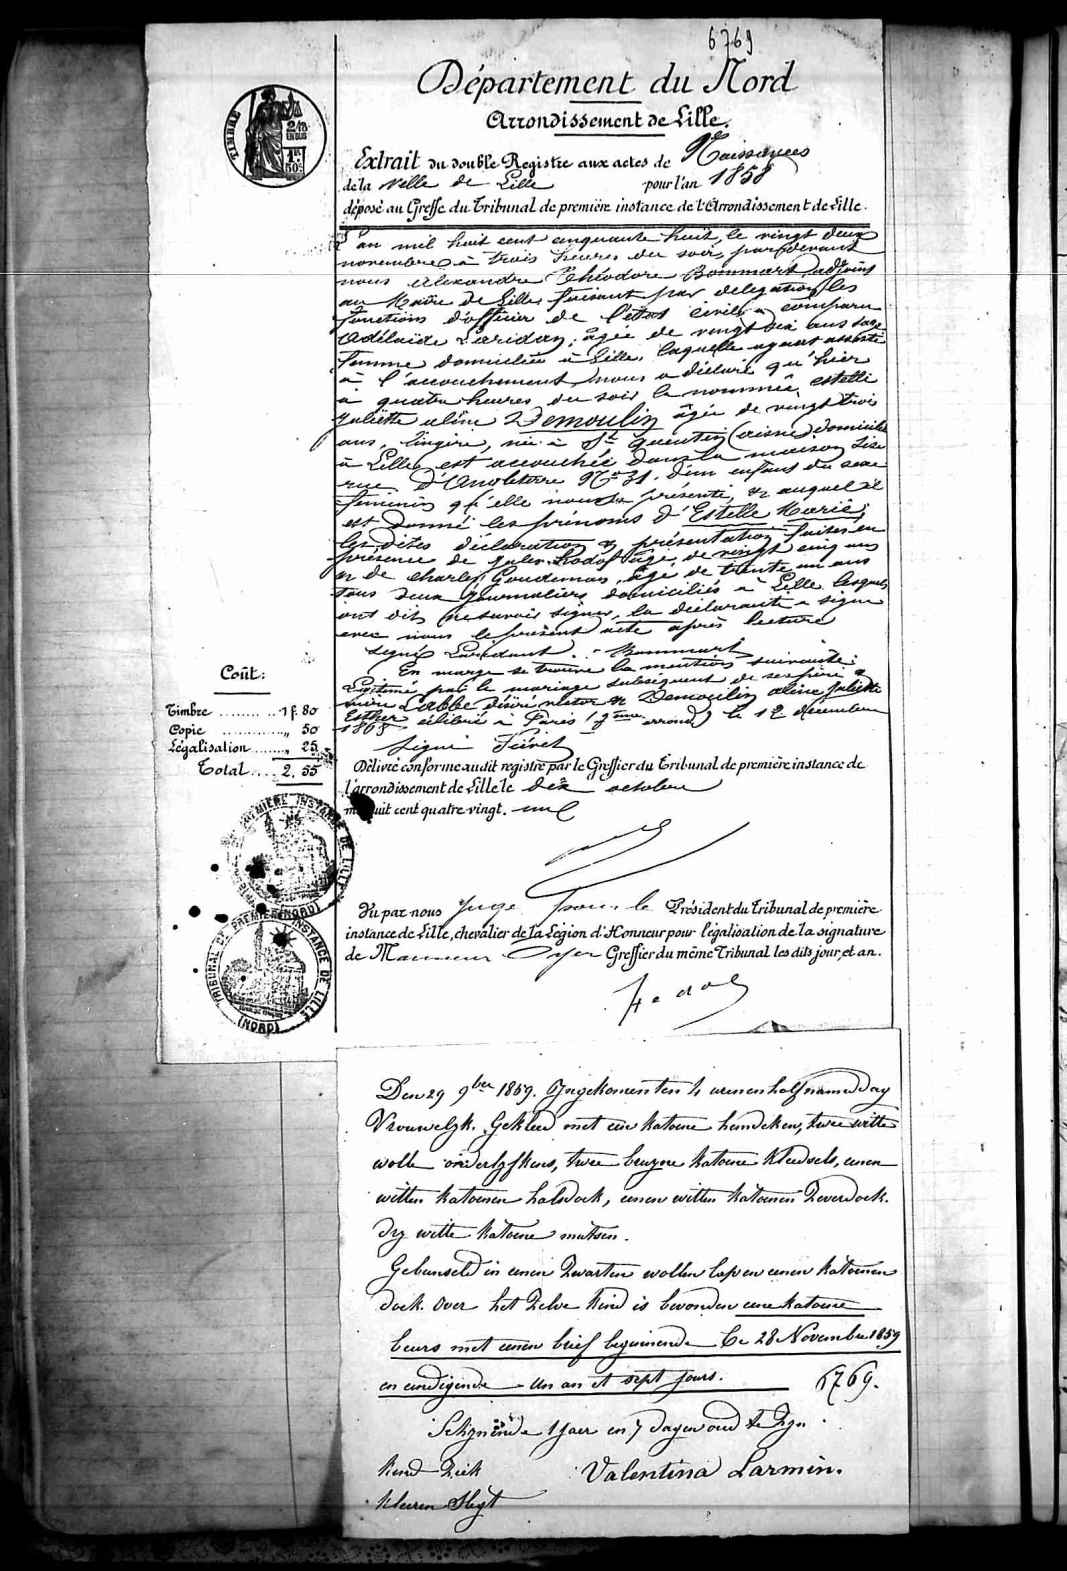 6769
Département du Nord
Arrondissement de Lille.
Extrait du double Registre aux actes de Naissances
de la Ville de Lille pour l'an 1858
déposé au Greffe du Tribunal de première instance de l'Arrondissement de Lille.
TIMBRE
L'an mil huit cent cinquante huit, le vingt deux
novembre à trois heures du soir, pardevant
nous Alexandre Théodore Bommart, adjoint
au Maire de Lille, faisant par délégation les
fonctions d'officier de l'état civil, a comparu
Adélaïde Laridan, âgée de vingt dix ans sage
femme domiciliée à Lille, laquelle ayant assisté
à l'accouchement nous a déclaré qu'hier
à quatre heures du soir la nommée estelle
Juliette aline Demoulin âgée de vingt trois
ans, lingère, née à St quentin (aisne) domiciliée
à Lille est accouchée dans la maison sise
rue d'Angleterre No 31. d'un enfant du sexe
féminin qu'elle nous a présenté, & auquel il
est donné les prénoms d'Estelle Marie,
les dites déclaration & présentation faites en
présence de Jules Rodof âgé de vingt cinq ans
& de charles Goudeman, âgé de trente un ans
tous deux journaliers domiciliés à Lille lesquels
ont dit ne savoir signer, la déclarante a signé
avec nous le présent acte après lecture
signé Laridant. - Bommart
En marge se trouve la mention suivante:
Légitimé par le mariage subséquent de ses père &
mère Labbé désiré victor & Demoulin aline Juliette
Esther célébré à Paris (9ème arrond) le 12 décembre
1865
Signé
Délivré conforme audit registre par le Greffier du Tribunal de première instance de
l'arrondissement de Lille le dix octobre
mil huit cent quatre vingt. un
Coût:
Timbre ........ 1 f. 80
Copie ............ " 50
Légalisation ...... " 25
Total .... 2, 55
TRIBUNAL DE PREMIERE INSTANCE DE LILLE (NORD)
Vu par nous Juge pour le Président du Tribunal de première
instance de Lille, chevalier de la Légion d'Honneur pour légalisation de la signature
de Monsieur Greffier du même Tribunal les dits jour et an.
Den 29 9ber 1859. Ingekomen ten 4 uren en half namiddag
Vrouwelyk. Gekleed met een katoene hemdeken, twee witte
wolle onderlyfkens, twee bruyne katoene kleedsels, eenen
witten katoenen halsdoek, eenen witten katoenen Zeverdoek.
dry witte katoene mutsen.
Gebunseld in eenen Zwarten wollen lap en eenen katoenen
doek. Over het Zelve kind is bevonden eene katoene
beurs met eenen brief beginnende Ce 28 Novembre 1859
en eindigende un an et sept jours. 6769.
1 jaer en 7 dagen oud te zyn
Kind Ziek Valentina Larmin.
Kleeren Slegt